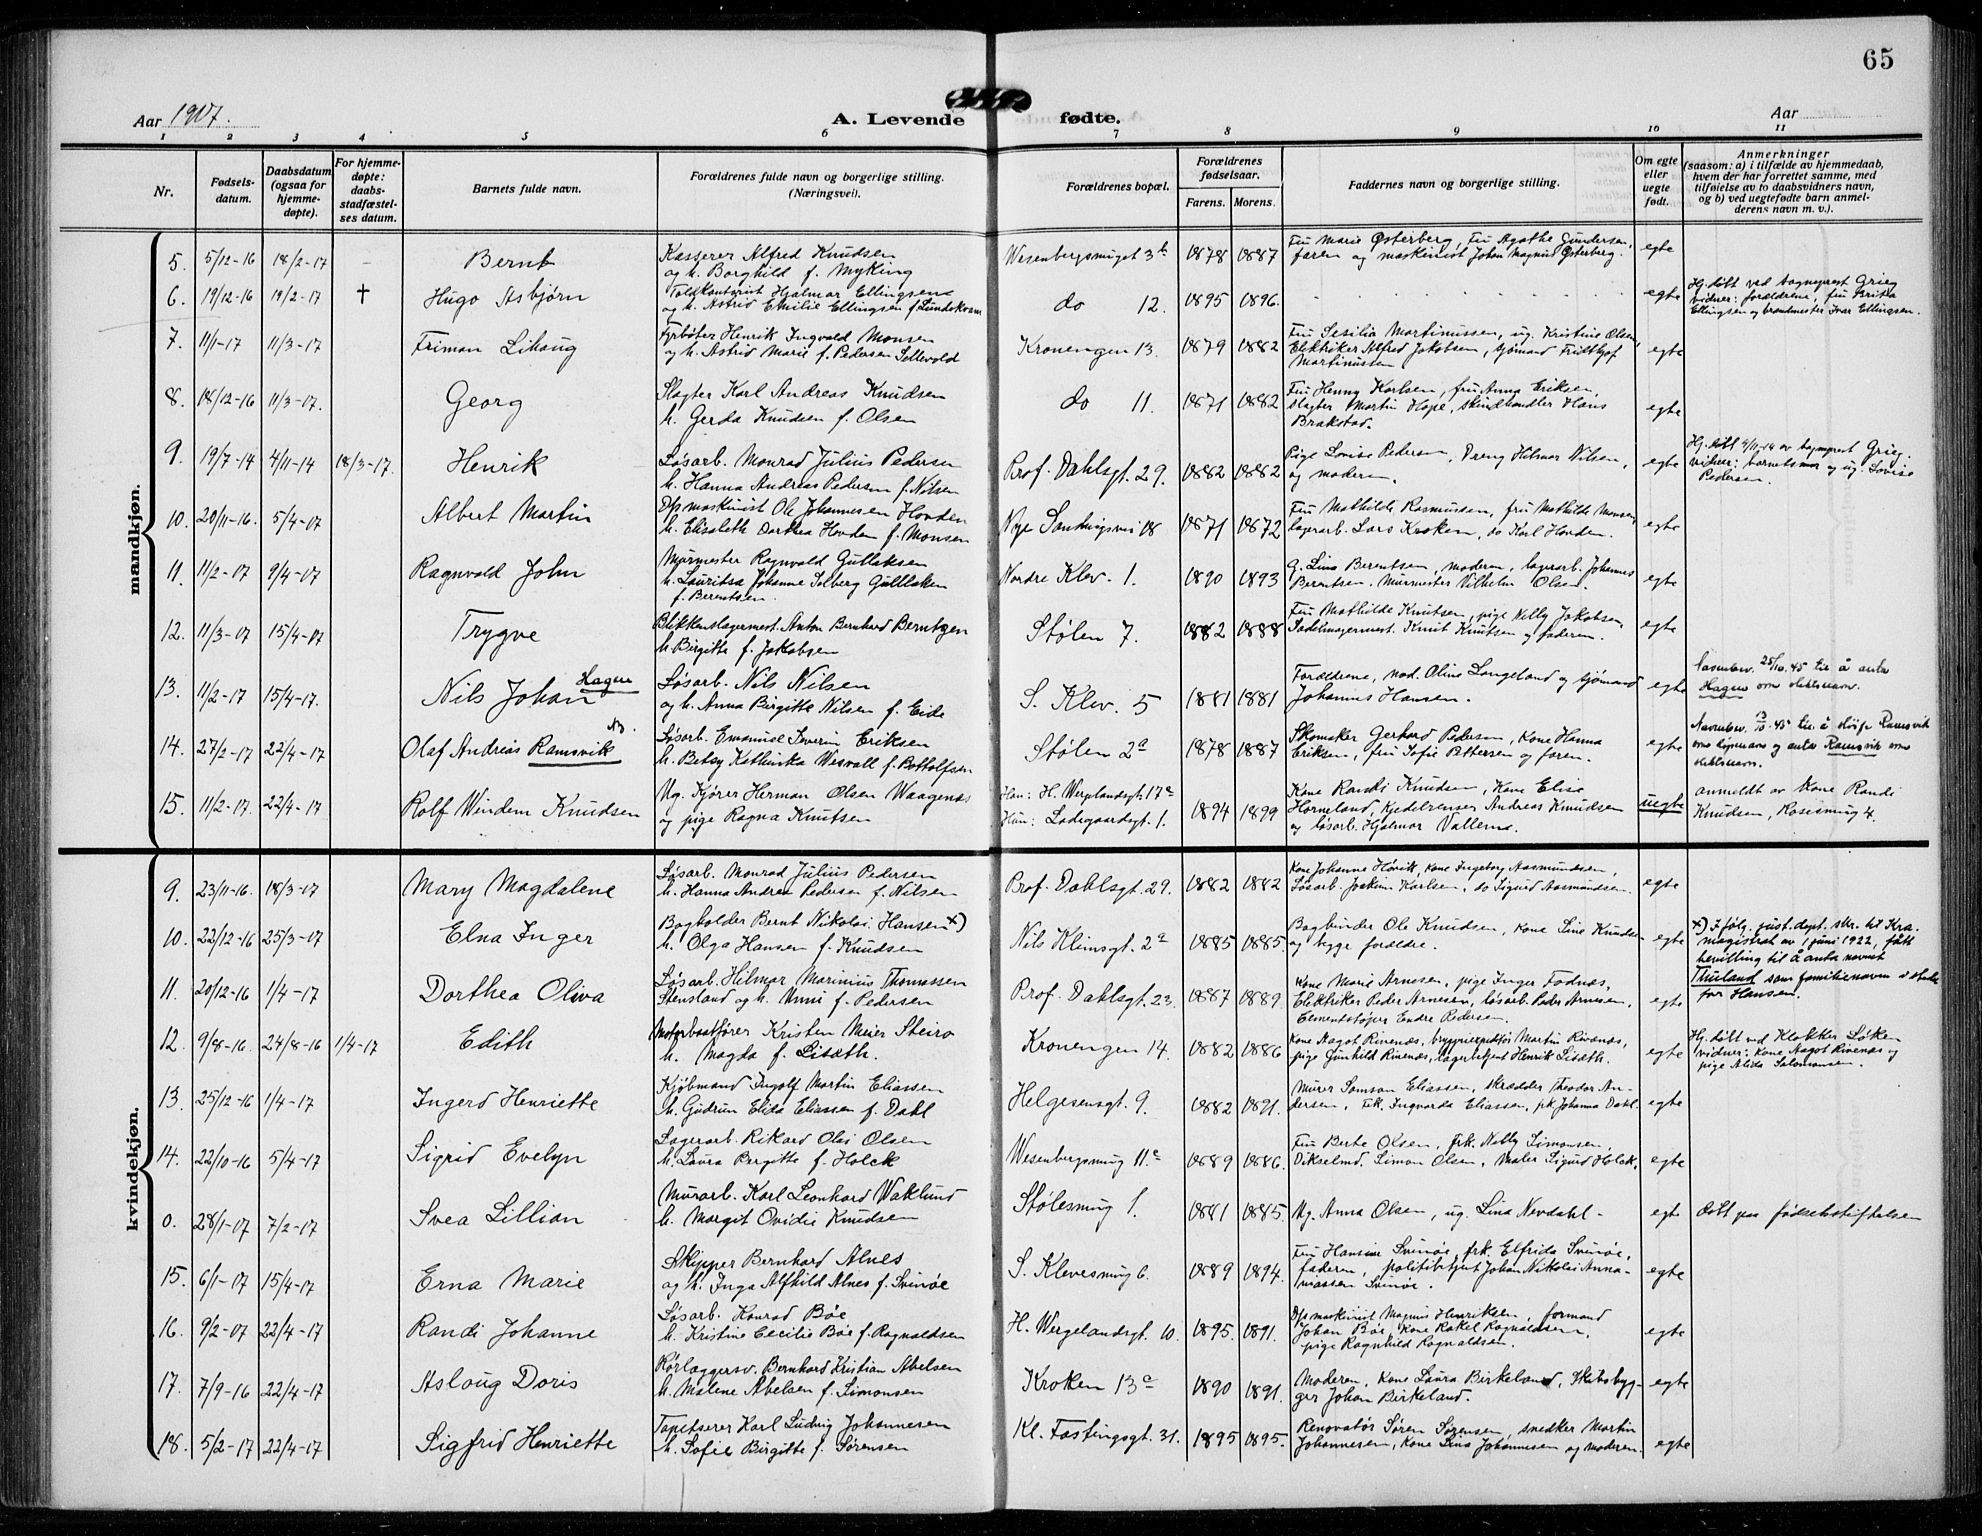 65
Aar 1907.
A. Levende fødte.
Aar
1 2 3 4 5 6 7 8 9 10 11
Nr.
Fødsels-
datum.
Daabsdatum
(ogsaa for
hjemme-
døpte).
For hjemme-
døpte:
daabs-
stadfæstel-
ses datum.
Barnets fulde navn.
Forældrenes fulde navn og borgerlige stilling.
(Næringsvei).
Forældrenes bopæl.
Forældrenes
fødselsaar.
Farens. Morens.
Faddernes navn og borgerlige stilling.
Om egte
eller
uegte
født.
Anmerkninger
(saasom: a) i tilfælde av hjemmedaab,
hvem der har forrettet samme, med
tilføielse av to daabsvidners navn,
og b) ved uegtefødte barn anmel-
derens navn m. v.).
mandkjøn.
5. 5/12-16 18/2-17 - Bernt
Kasserer Alfred Knudsen
og h. Borghild f. Myking
Wesenbergsmuget 3b 1878 1887
Fru Marie Østerberg, Fru Agathe Gundersen,
faren og maskinist Johan Magnus Østerberg.
egte
6. 19/12-16 19/2-17 † Hugo Asbjørn
Toldkontorist Hjalmar Ellingsen
og h. Astrid Emilie Ellingsen f. Lundekvam
do 12. 1895 1896.
egte
Hj. døbt ved sogneprest Grieg
vidner: forældrene, fru Brita
Ellingsen og brandmester Ivar Ellingsen.
7. 11/1-17 11/3-17 Friman Lihaug
Fyrbøter Henrik Ingvald Monsen
og h. Astrid Marie f. Pedersen Sollevold
Kronengen 13. 1879 1882
Fru Sesilie Martinussen, ug. Kristine Olsen
Elektriker Alfred Jakobsen, sjømand Fridthjof
Martinussen
egte
8. 18/12-16 11/3-07. Georg
Slagter Karl Andreas Knudsen
h. Gerda Knudsen f. Olsen
do 11. 1871 1882
Fru Henny Karlsen, fru Anna Eriksen,
slagter Martin Hope, skindhandler Hans
Brakstad.
egte
9. 19/7-14 4/11-14 18/3-17. Henrik
Løsarb. Monrad Julius Pedersen
h. Hanna Andrea Pedersen f. Nilsen
Prof. Dahlsgt. 29. 1882 1882
Pige Lovise Pedersen, Dreng Hilmar Nilsen,
og moderen.
egte
Hj. døbt 4/11-14 av sogneprest Grieg.
vidner: barnets mor og ug. Lovise
Pedersen.
10. 20/11-16. 5/4-07 Albert Martin
Dps maskinist Ole Johannesen Hovden
h. Elisabeth Dorthea Hovden f. Monsen
Nye Sandviksvei 18 1871 1872
Fru Mathilde Rasmussen, fru Mathilde Monsen
lagerarb. Lars Kroken, do Karl Hovden.
egte
11. 11/2-07 9/4-07 Ragnvald John
Murmester Ragnvald Gullaksen
h. Lauritsa Johanne Solberg Gullaksen
f. Berentsen.
Nordre Klev. 1. 1890 1893
G. Lina Berentsen, moderen, lagerarb. Johannes
Berentsen, Murmester Vilhelm Olsen.
egte
12. 11/3-07 15/4-07 Trygve
Blikkenslagermest. Anton Bernhard Berntzen
h. Birgitte f. Jakobsen
Stølen 7. 1882 1888
Fru Mathilde Knutsen, pige Nelly Jakobsen,
Sadelmagermest. Knut Knutsen og faderen.
egte
13. 11/2-17 15/4-17. Nils Johan Hagen
Løsarb. Nils Nilsen
og h. Anna Birgitte Nilsen f. Eide
S. Klev. 5 1881 1881
Forældrene, mad. Oline Langeland og sjømand
Johannes Hansen.
egte
Navnbev. 25/10.45 til å anta
Hagen som slektsnavn.
14. 27/2-17 22/4-17 Olaf Andreas Ramsvik
Løsarb. Emanuel Severin Eriksen
h. Betsy Kathinka Wesvall f. Bottolfsen
Stølen 2a 1878 1887
Skomaker Gerhard Pedersen, Kone Hanna
Eriksen, fru Sofie Pettersen og faren.
egte
og anta Ramsvik som
slektsnavn.
15. 11/2-07. 22/4-17 Rolf Windem Knudsen
Ug. Kjører Herman Olsen Waagenæs
og pige Ragna Knutsen
Han: H. Wergelandsgt. 17c
Hun: Ladegaardsgt. 1.
1894 1899
Kone Randi Knudsen, Kone Elise
Horneland, Kjedelrenser Andreas Knudsen
og løsarb. Hjalmar Vallerne.
uegte
anmeldt av Kone Randi
Knudsen, Rosesmug 4.
kvindekjøn.
9. 23/11-16. 18/3-07 Mary Magdalene
Løsarb. Monrad Julius Pedersen
h. Hanna Andrea Pedersen f. Nilsen
Prof. Dahlsgt. 29. 1882 1882
Kone Johanne Høvik, Kone Ingeborg Aasmundsen,
Løsarb. Joakim Karlsen, do Sigurd Aasmundsen.
egte
10. 22/12-16 25/3-07 Elna Inger
Bogholder Bernt Nikolai Hansen x)
h. Olga Hansen f. Knudsen
Nils Klimsgt. 2a 1885 1885
Bogbinder Ole Knudsen, Kone Lina Knudsen
og begge forældre.
egte
x) Ifølg. just. dept. skr. til Kra.
magistrat av 1 juni 1922, fått
bevilling til å anta navnet
Thuland som familienavn i stedet
for Hansen.
11. 20/12-16 1/4-17 Dorthea Oliva
Løsarb. Hilmar Marinius Thomassen
Stensland og h. Unni f. Pedersen
Prof. Dahlsgt. 23. 1887 1889
Kone Marie Arnesen, pige Inger Fodnæs,
Elektriker Peder Arnesen, løsarb. Peder Arnesen,
Cementstøper Endre Pedersen.
egte
12. 9/8-16. 24/8-16 1/4-17 Edith
Motorbaatfører Kristen Meier Steiro
h. Magda f. Lisæth.
Kronengen 14. 1882 1886
Kone Aagot Rivenæs, bryggeriexpeditør Martin Rivenæs,
pige Gunhild Rivenæs, lagerbetjent Henrik Lisæth.
egte
Hj. døbt ved Klokker Løken
vidner: Kone Aagot Rivenæs og
pige Alida Salomonsen.
13. 25/12-16 1/4-17 Ingerd Henriette
Kjøbmand Ingolf Martin Eliassen
h. Gudrun Elida Eliassen f. Dahl
Helgesensgt. 9. 1882 1891.
Murer Samson Eliassen, skrædder Theodor An-
dersen, Frk. Ingvarda Eliassen, frk. Johanna Dahl.
egte
14. 22/10-16 5/4-17 Sigrid Evelyn
Lagerarb. Rikard Olai Olsen
h. Laura Bergitte f. Holck
Wesenbergsmug 11c 1889 1886.
Fru Berte Olsen, frk. Nelly Simonsen,
Dikselmd. Simon Olsen, Maler Sigurd Holck.
egte
0. 28/1-07 7/2-07 Svea Lillian
Murarb. Karl Leonhard Waklund
h. Margit Ovidie Knudsen
Stølesmug 1. 1881 1885.
Ug. Anna Olsen, ug. Lina Nevdahl -
egte
døbt paa fødselsstiftelsen
15. 6/1-07 15/4-07 Erna Marie
Skipper Bernhard Alnes
og h. Inga Alfhild Alnes f. Svinøe
S. Klevesmug 6. 1889 1894.
Fru Hansine Svinøe, frk. Elfrida Svinøe,
faderen, politibetjent Johan Nikolai Anna-
niassen Svinøe.
egte
16. 9/2-07 22/4-17 Randi Johanne
Løsarb. Konrad Bøe
h. Kristine Cecilie Bøe f. Ragnaldsen
H. Wergelandsgt. 10. 1895. 1891.
Dps maskinist Magnus Henriksen, formand
Johan Bøe, Kone Rakel Ragnaldsen,
pige Ragnhild Ragnaldsen.
egte
17. 7/9-16 22/4-17 Aslaug Doris
Rørlæggersv. Bernhard Kristian Abelsen
h. Malene Abelsen f. Simonsen
Kroken 13a 1890 1891.
Moderen, Kone Laura Birkeland, Skibsbyg-
ger Johan Birkeland.
egte
18. 5/2-17 22/4-17 Sigfrid Henriette
Tapetserer Karl Ludvig Johannesen
h. Sofie Birgitte f. Sørensen
Kl. Fastingsgt. 31. 1895 1895.
Renovatør Søren Sørensen, snedker Martin
Johannesen, Kone Lina Johannesen og moderen.
egte